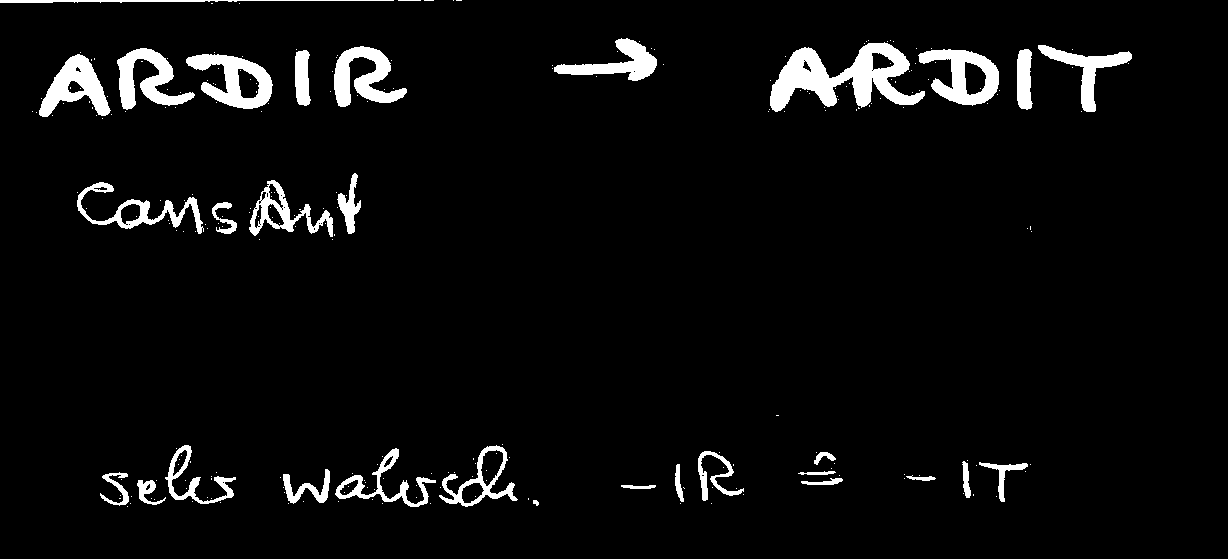 ARDIR → ARDIT
Constant
sehr wahrsch. -IR ≙ -IT